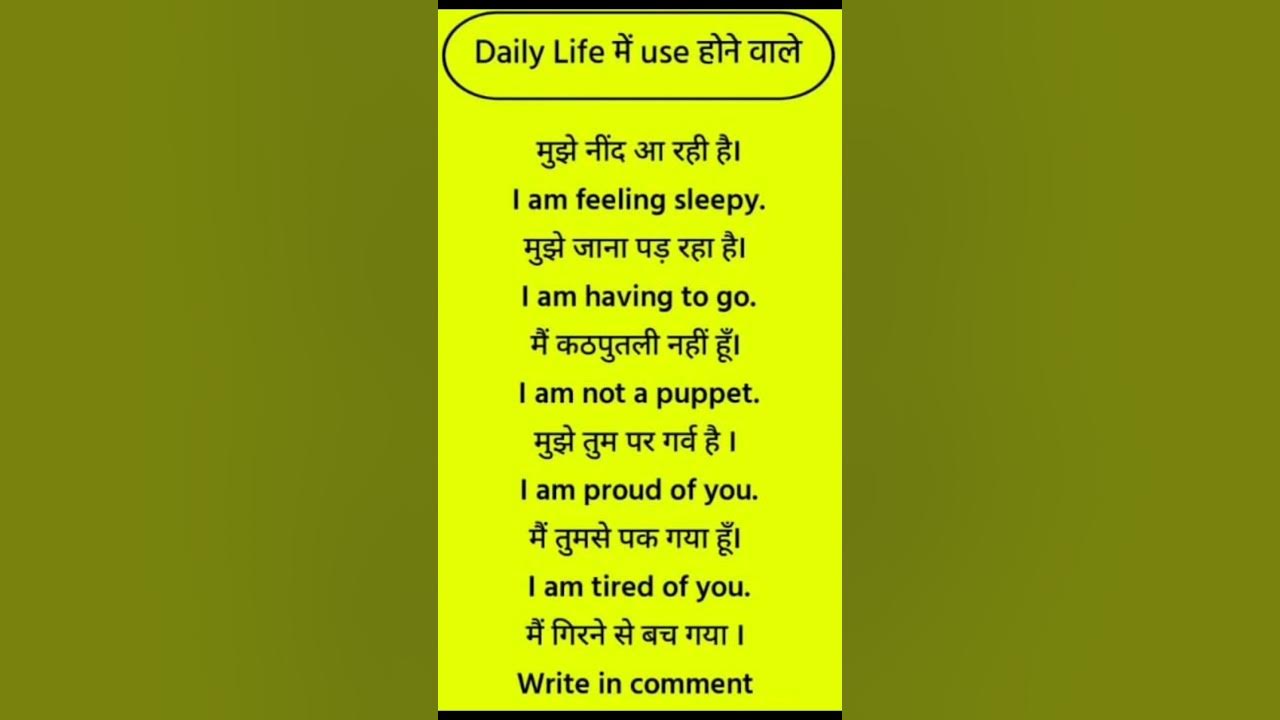 Daily Life में use होने वाले
मुझे नींद आ रही है।
I am feeling sleepy.
मुझे जाना पड़ रहा है।
I am having to go.
मैं कठपुतली नहीं हूँ।
I am not a puppet.
मुझे तुम पर गर्व है ।
I am proud of you.
मैं तुमसे पक गया हूँ।
I am tired of you.
मैं गिरने से बच गया ।
Write in comment